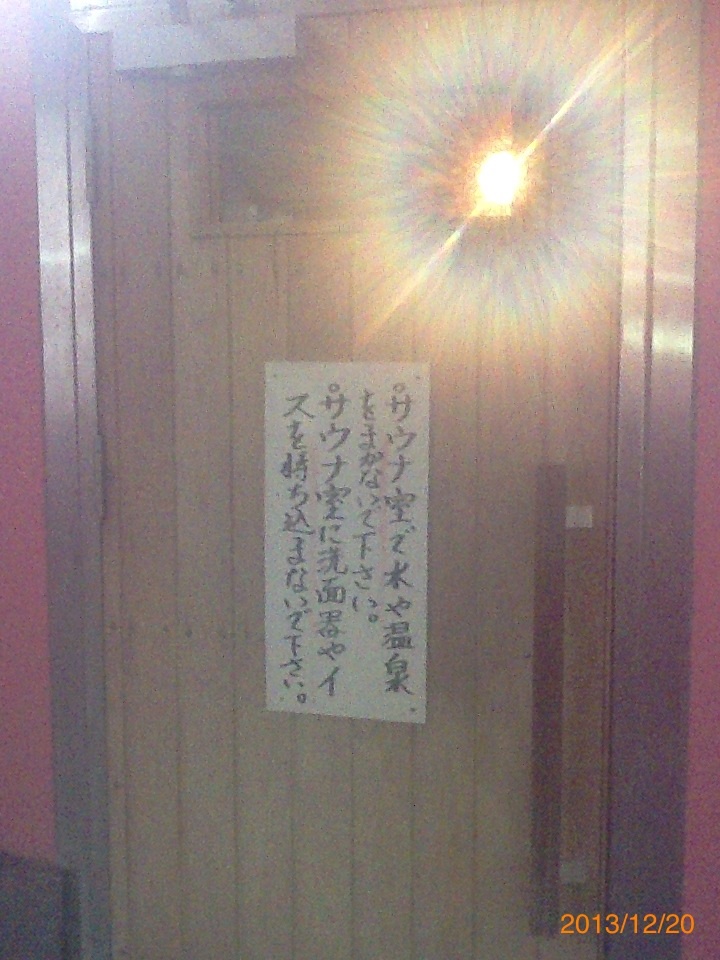 °サウナ室で水や温泉
をまかないで下さい。
°サウナ室に洗面器やイ
スを持ち込まないで下さい。
2013/12/20